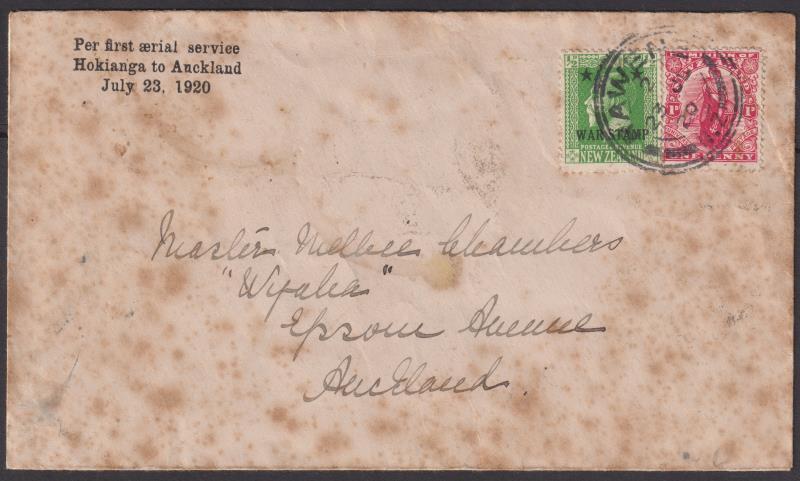 Per first ærial service
Hokianga to Auckland
July 23, 1920
½
WAR STAMP
POSTAGE & REVENUE
NEW ZEALAND
DOMINION OF
1D
1D
ONE PENNY
23 JL
20
Master Melbee Chambers
"Wyaha"
Epsom Avenue
Auckland.